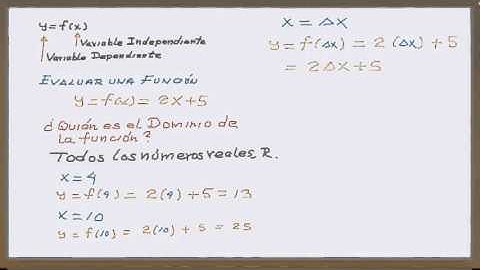 y=f(x)
Variable Independiente
Variable Dependiente
EVALUAR UNA FUNCIÓN
y=f(x)=2x+5
¿Quién es el Dominio de
la función?
Todos los números reales, R.
x=4
y=f(4)=2(4)+5=13
x=10
y=f(10)=2(10)+5=25
x=Δx
y=f(Δx)=2(Δx)+5
=2Δx+5